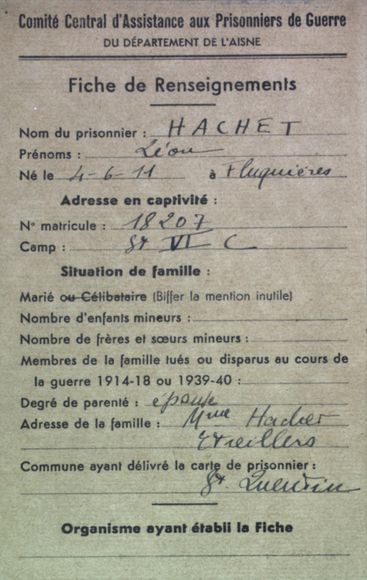 Comité Central d'Assistance aux Prisonniers de Guerre
DU DÉPARTEMENT DE L'AISNE
Fiche de Renseignements
Nom du prisonnier : HACHET
Prénoms : Léon
Né le 4-6-11 à Fluquières
Adresse en captivité :
N° matricule : 18207
Camp : St VI C
Situation de famille :
Marié ou Célibataire (Biffer la mention inutile)
Nombre d'enfants mineurs :
Nombre de frères et sœurs mineurs :
Membres de la famille tués ou disparus au cours de
la guerre 1914-18 ou 1939-40 :
Degré de parenté : épouse
Adresse de la famille : Mme Hachet
Etreillers
Commune ayant délivré la carte de prisonnier :
St Quentin
Organisme ayant établi la Fiche